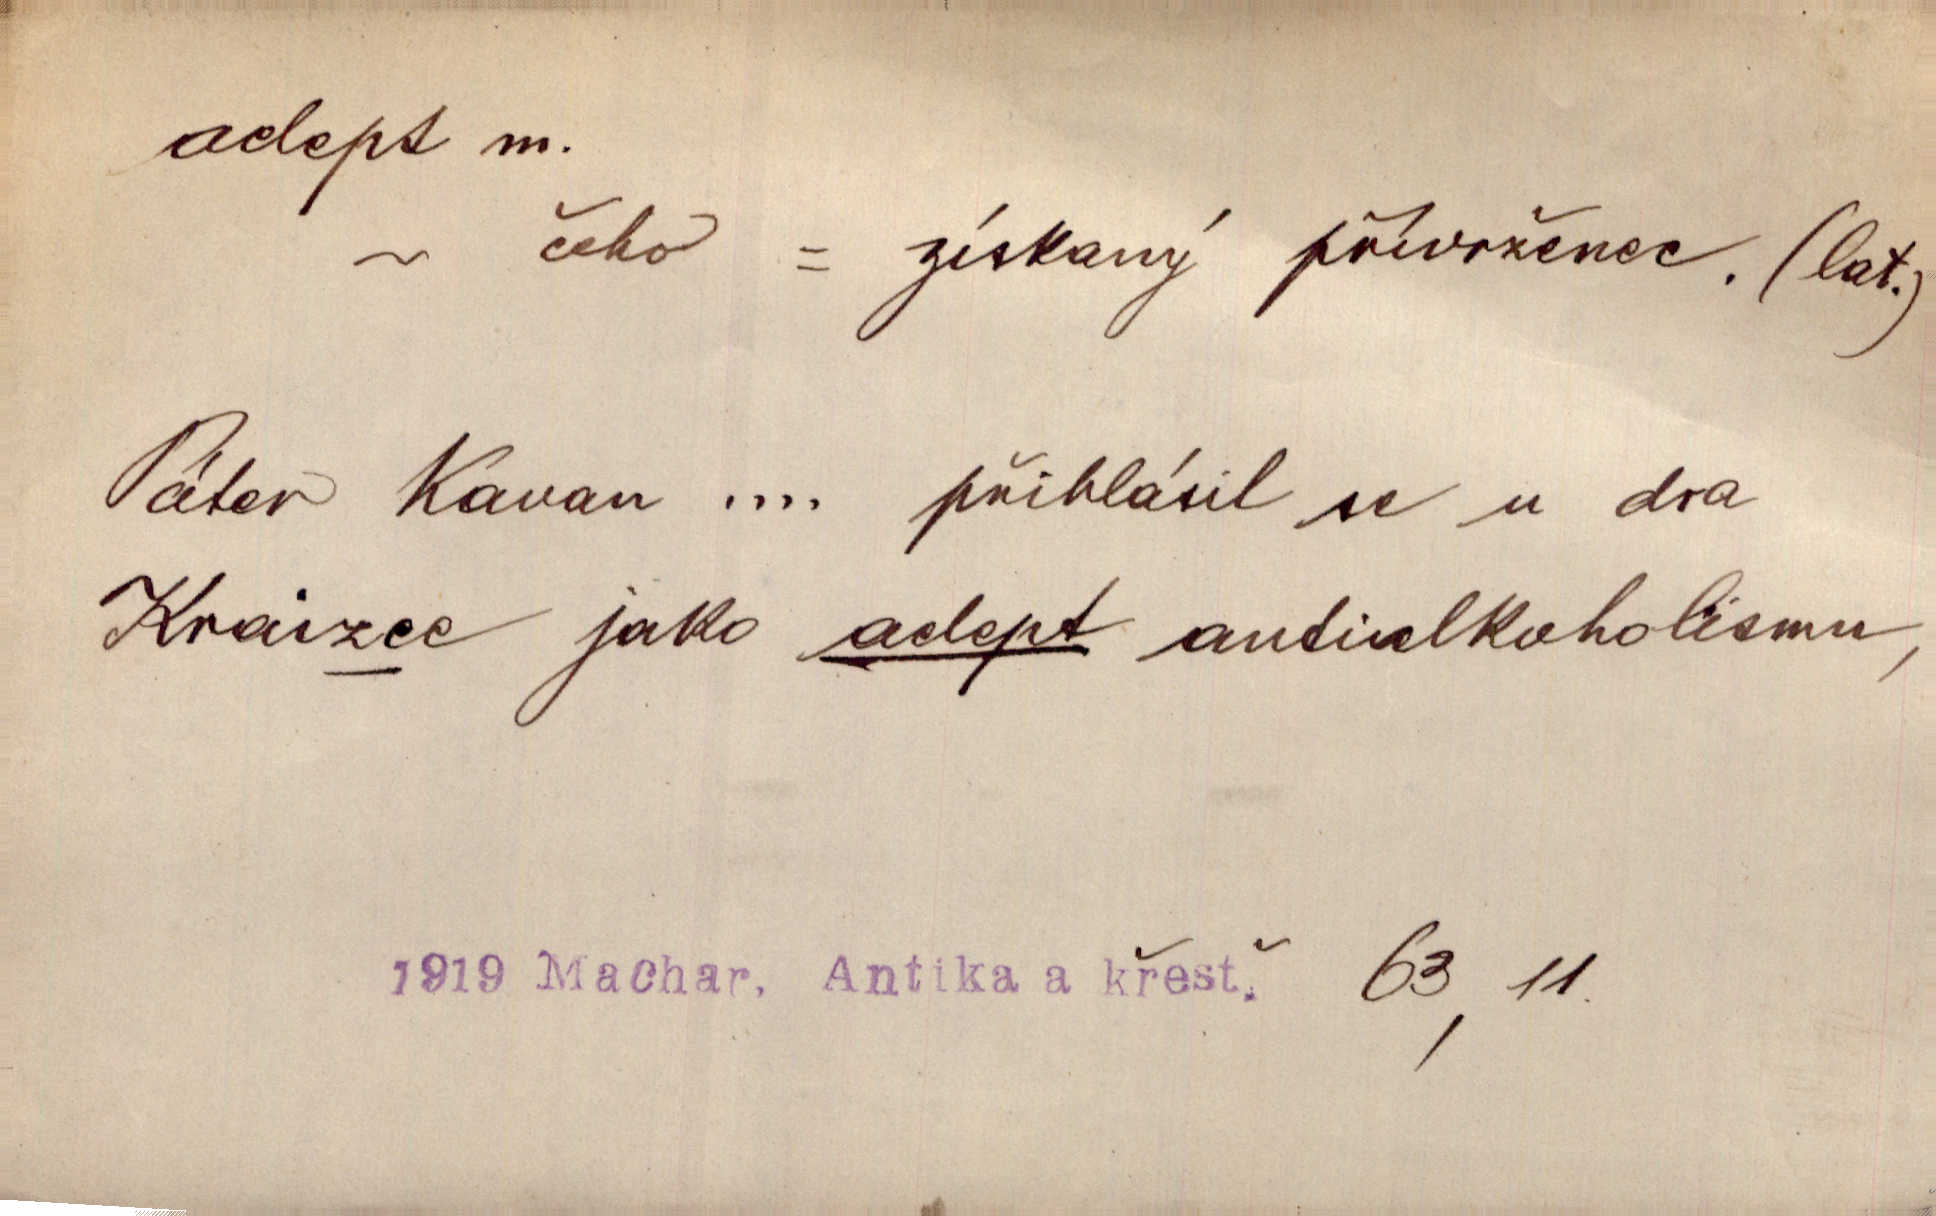 adept m.
~ čeho = získaný přívrženec. (lat.)
Páter Kavan .... přihlásil se u dra
jako adept antialkoholismu,
1919 Machar, Antika a křest.̌ 63, 11.